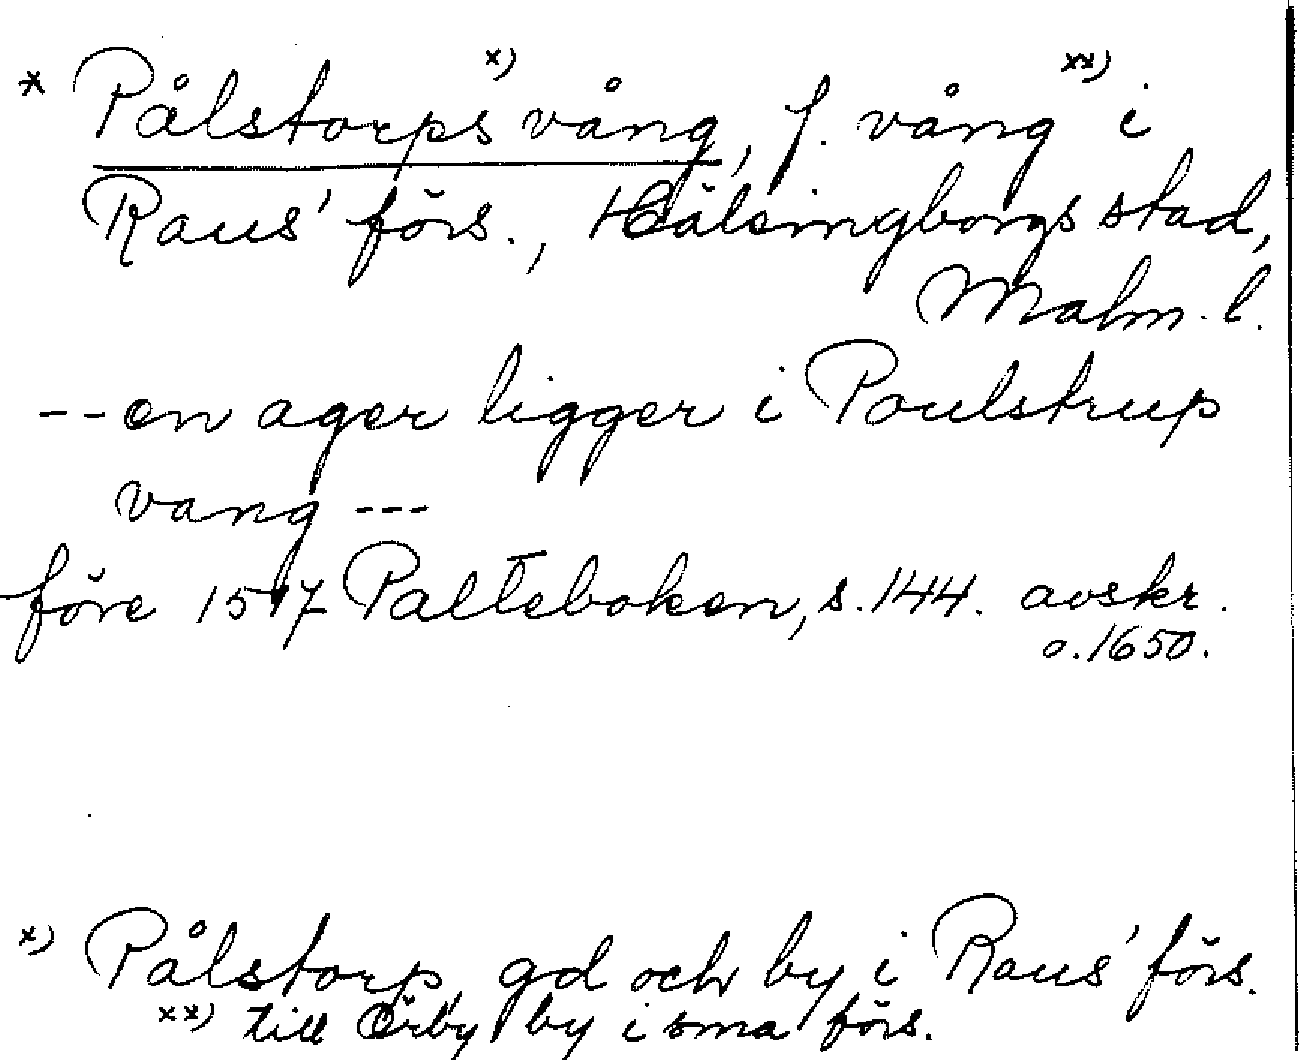 * Pålstorps x) vång, f. vång xx) i
Raus' förs., Hälsingborgs stad,
Malm. l.
-- en ager ligger i Poulstrup
vang ---
före 1517 Palteboken, s. 144. avskr.
o. 1650.
x) Pålstorp, gd och by i Raus' förs.
xx) till Örby by i sma förs.